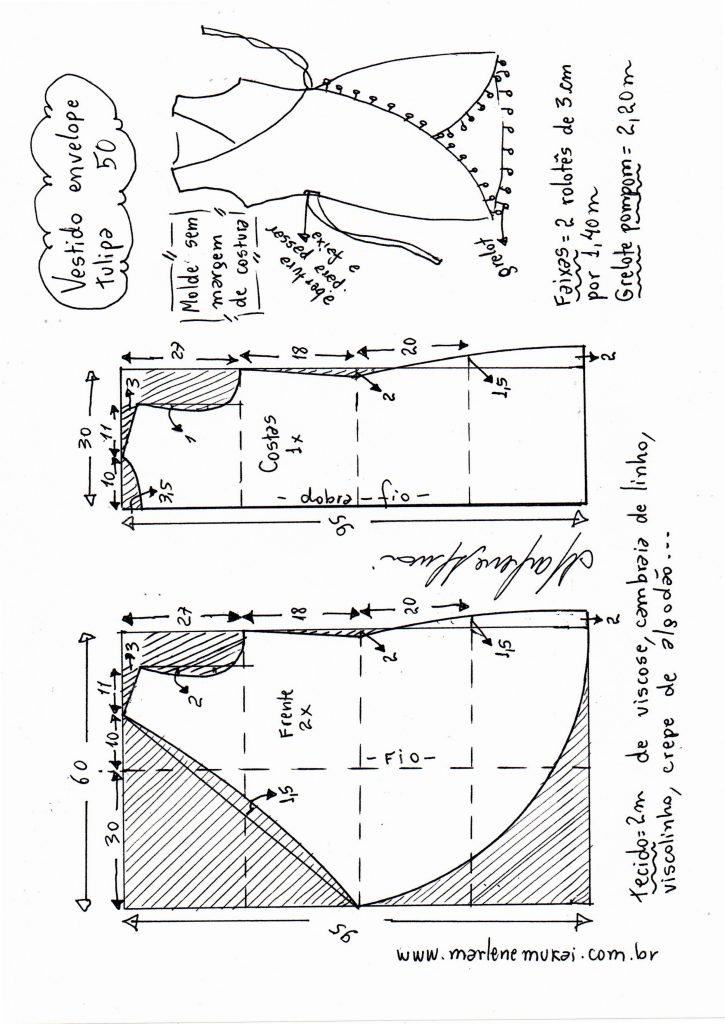 Vestido envelope
tulipa 50
"Molde sem
margem
de costura"
deixe p.
passar
Grelot
Faixas = 2 rolotês de 3cm
por 1,40m
Grelote pompom = 2,20m
30
10
11
3
27
18
20
3,5
1
2
1,5
2
Costas
1x
- fio - dobra -
95
Marlene Mukai
60
30
10
11
3
27
18
20
2
2
1,5
2
1,5
Frente
2x
- FIO -
95
Tecido = 2m de viscose, cambraia de linho,
viscolinho, crepe de algodão...
www.marlenemukai.com.br